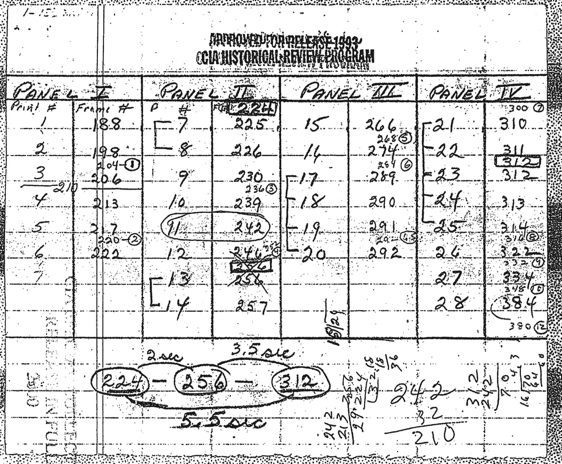 APPROVED FOR RELEASE 1993
CIA HISTORICAL REVIEW PROGRAM
PANEL I PANEL II PANEL III PANEL IV
Print # Frame # P # 224 300 7
1 188 7 225 15 266 21 310
268 5
2 198 8 226 16 274 22 311
204 1 284 6 312
3 206 9 230 17 289 23 312
210 236 3
4 213 10 239 18 290 24 313
5 217 11 242 19 291 25 314
220 2
6 222 12 246 20 292 26 322
7 256 332
13 256 27 334
14 257 28 384
380 12
18/29
2 sec 3.5 sec
224 - 256 - 312
5.5 sec
242
32
210
242
213
29
312
242
70